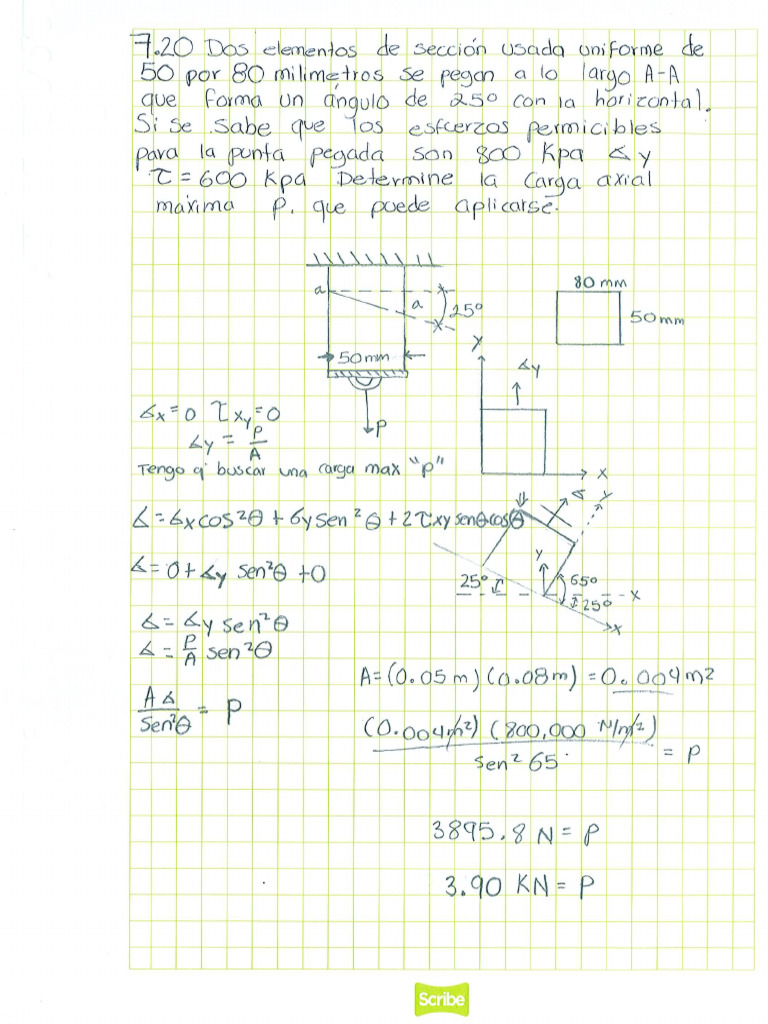 7.20 Dos elementos de sección usada uniforme de
50 por 80 milimetros se pegan a lo largo A-A
que forma un ángulo de 25º con la horizontal.
Si se sabe que los esfcerzos permicibles
para la punta pegada son 800 Kpa ⦟y
τ=600 Kpa Determine la carga axial
maxima P. que puede aplicarse.
80 mm
50mm
a
a
25º
50mm
P
y
⦟y
x
⦟x=0 τxy=0
⦟y = P/A
Tengo q' buscar una carga max "p"
⦟=6xcos²θ+6ysen²θ+2τxysenθcosθ
⦟=0+⦟y sen²θ+0
⦟=⦟ysen²θ
⦟=P/A sen²θ
A⦟/sen²θ = P
⦟
y
y
65º
25º
25º
x
x
A=(0.05m)(0.08m)=0.004m²
(0.004m²)(800,000 N/m²)/sen²65 = P
3895.8 N = P
3.90 KN = P
Scribe